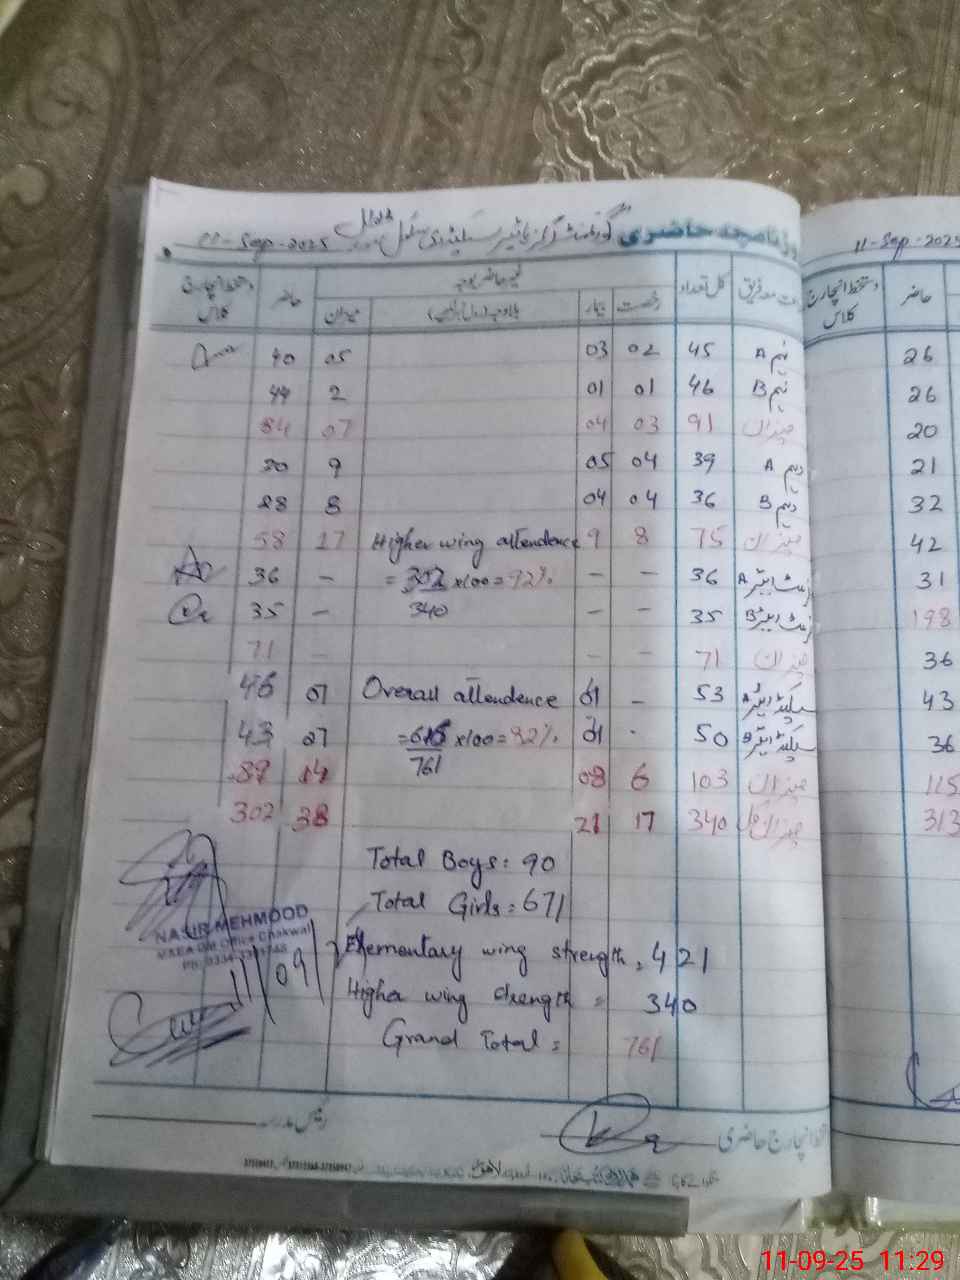 روزنامچہ حاضری گورنمنٹ گرلز ہائیر سیکنڈری سکول 11-Sep-2025
جماعت معہ فریق کل تعداد غیر حاضر بوجہ حاضر دستخط انچارج کلاس
رخصت بیمار میزان
نہم A 45 02 03 05 40
نہم B 46 01 01 2 44
میزان 91 03 04 07 84
دہم A 39 04 05 9 30
دہم B 36 04 04 8 28
میزان 75 8 9 Higher wing attendence 17 58
فرسٹ ائیر A 36 – – = 302 x100 = 92% – 36
فرسٹ ائیر B 35 – – 340 – 35
میزان 71 – – – 71
سیکنڈ ائیر A 53 – 01 Overall attendence 07 46
سیکنڈ ائیر B 50 = 615 x100 = 82% 07 43
761
میزان 103 6 08 14 89
میزان کل 340 17 21 38 302
Total Boys: 90
Total Girls = 671
Elementary wing strength = 421
Higher wing strength = 340
Grand Total = 761
NASIR MEHMOOD
Chakwal
11/09/
انچارج حاضری
رئیس مدرسہ
11-Sep-2025
حاضر دستخط انچارج کلاس
26
26
20
21
32
42
31
198
36
43
36
115
313
11-09-25 11:29